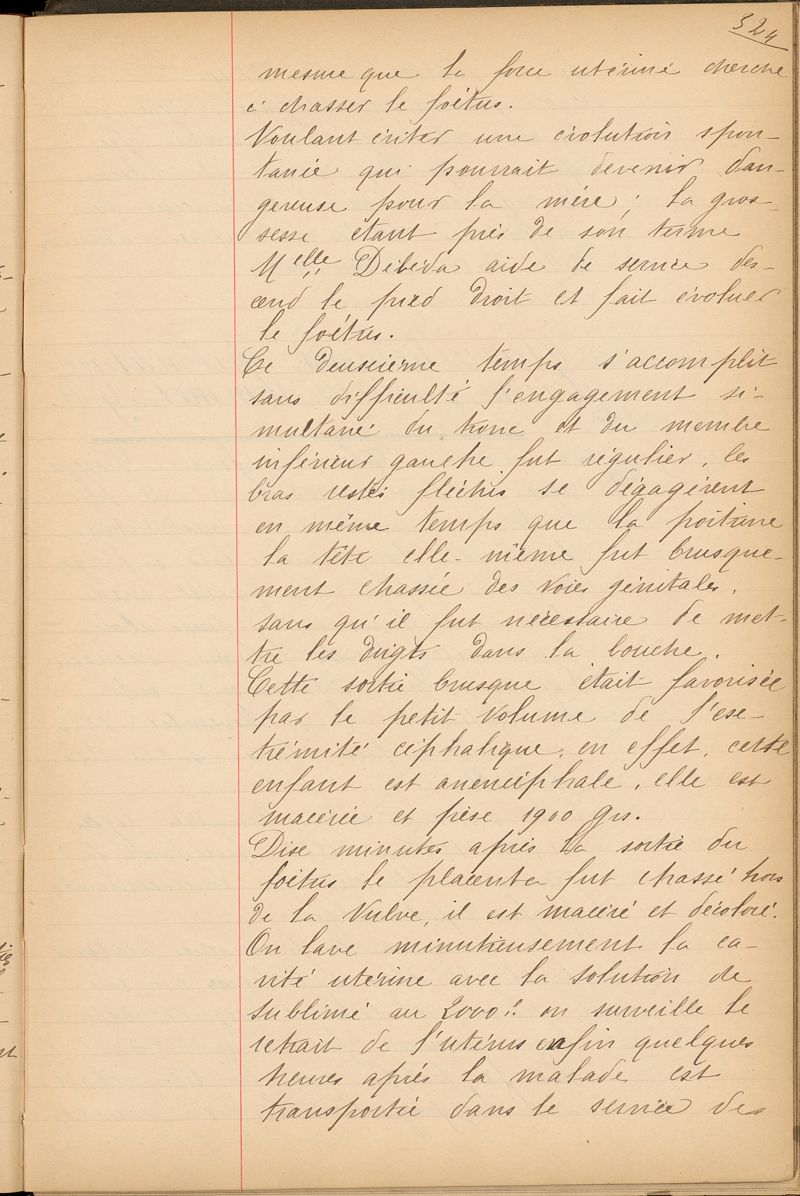 324
mesure que la force utérine cherche
à chasser le foétus.
Voulant éviter une évolution spon-
tanée qui pourrait devenir dan-
gereuse pour la mère ; la gros-
sesse étant près de son terme
Melle Débéda aide de service des-
cend le pied droit et fait évoluer
le foétus.
Ce deuxième temps s'accomplit
sans difficulté l'engagement si-
multané du tronc et du membre
inférieur gauche fut régulier, les
bras restés fléchis se dégagèrent
en même temps que la poitrine
la tête elle-même fut brusque-
ment chassée des voies génitales,
sans qu'il fut nécessaire de met-
tre les doigts dans la bouche.
Cette sortie brusque était favorisée
par le petit volume de l'ex-
trémité céphalique, en effet, cette
enfant est anencéphale, elle est
macérée et pèse 1900 grs.
Dix minutes après la sortie du
foétus le placenta fut chassé hors
de la vulve, il est macéré et décoloré.
On lave minutieusement la ca-
vité utérine avec la solution de
sublimé au 2000e on surveille le
retrait de l'utérus enfin quelques
heures après la malade est
transportée dans le service des